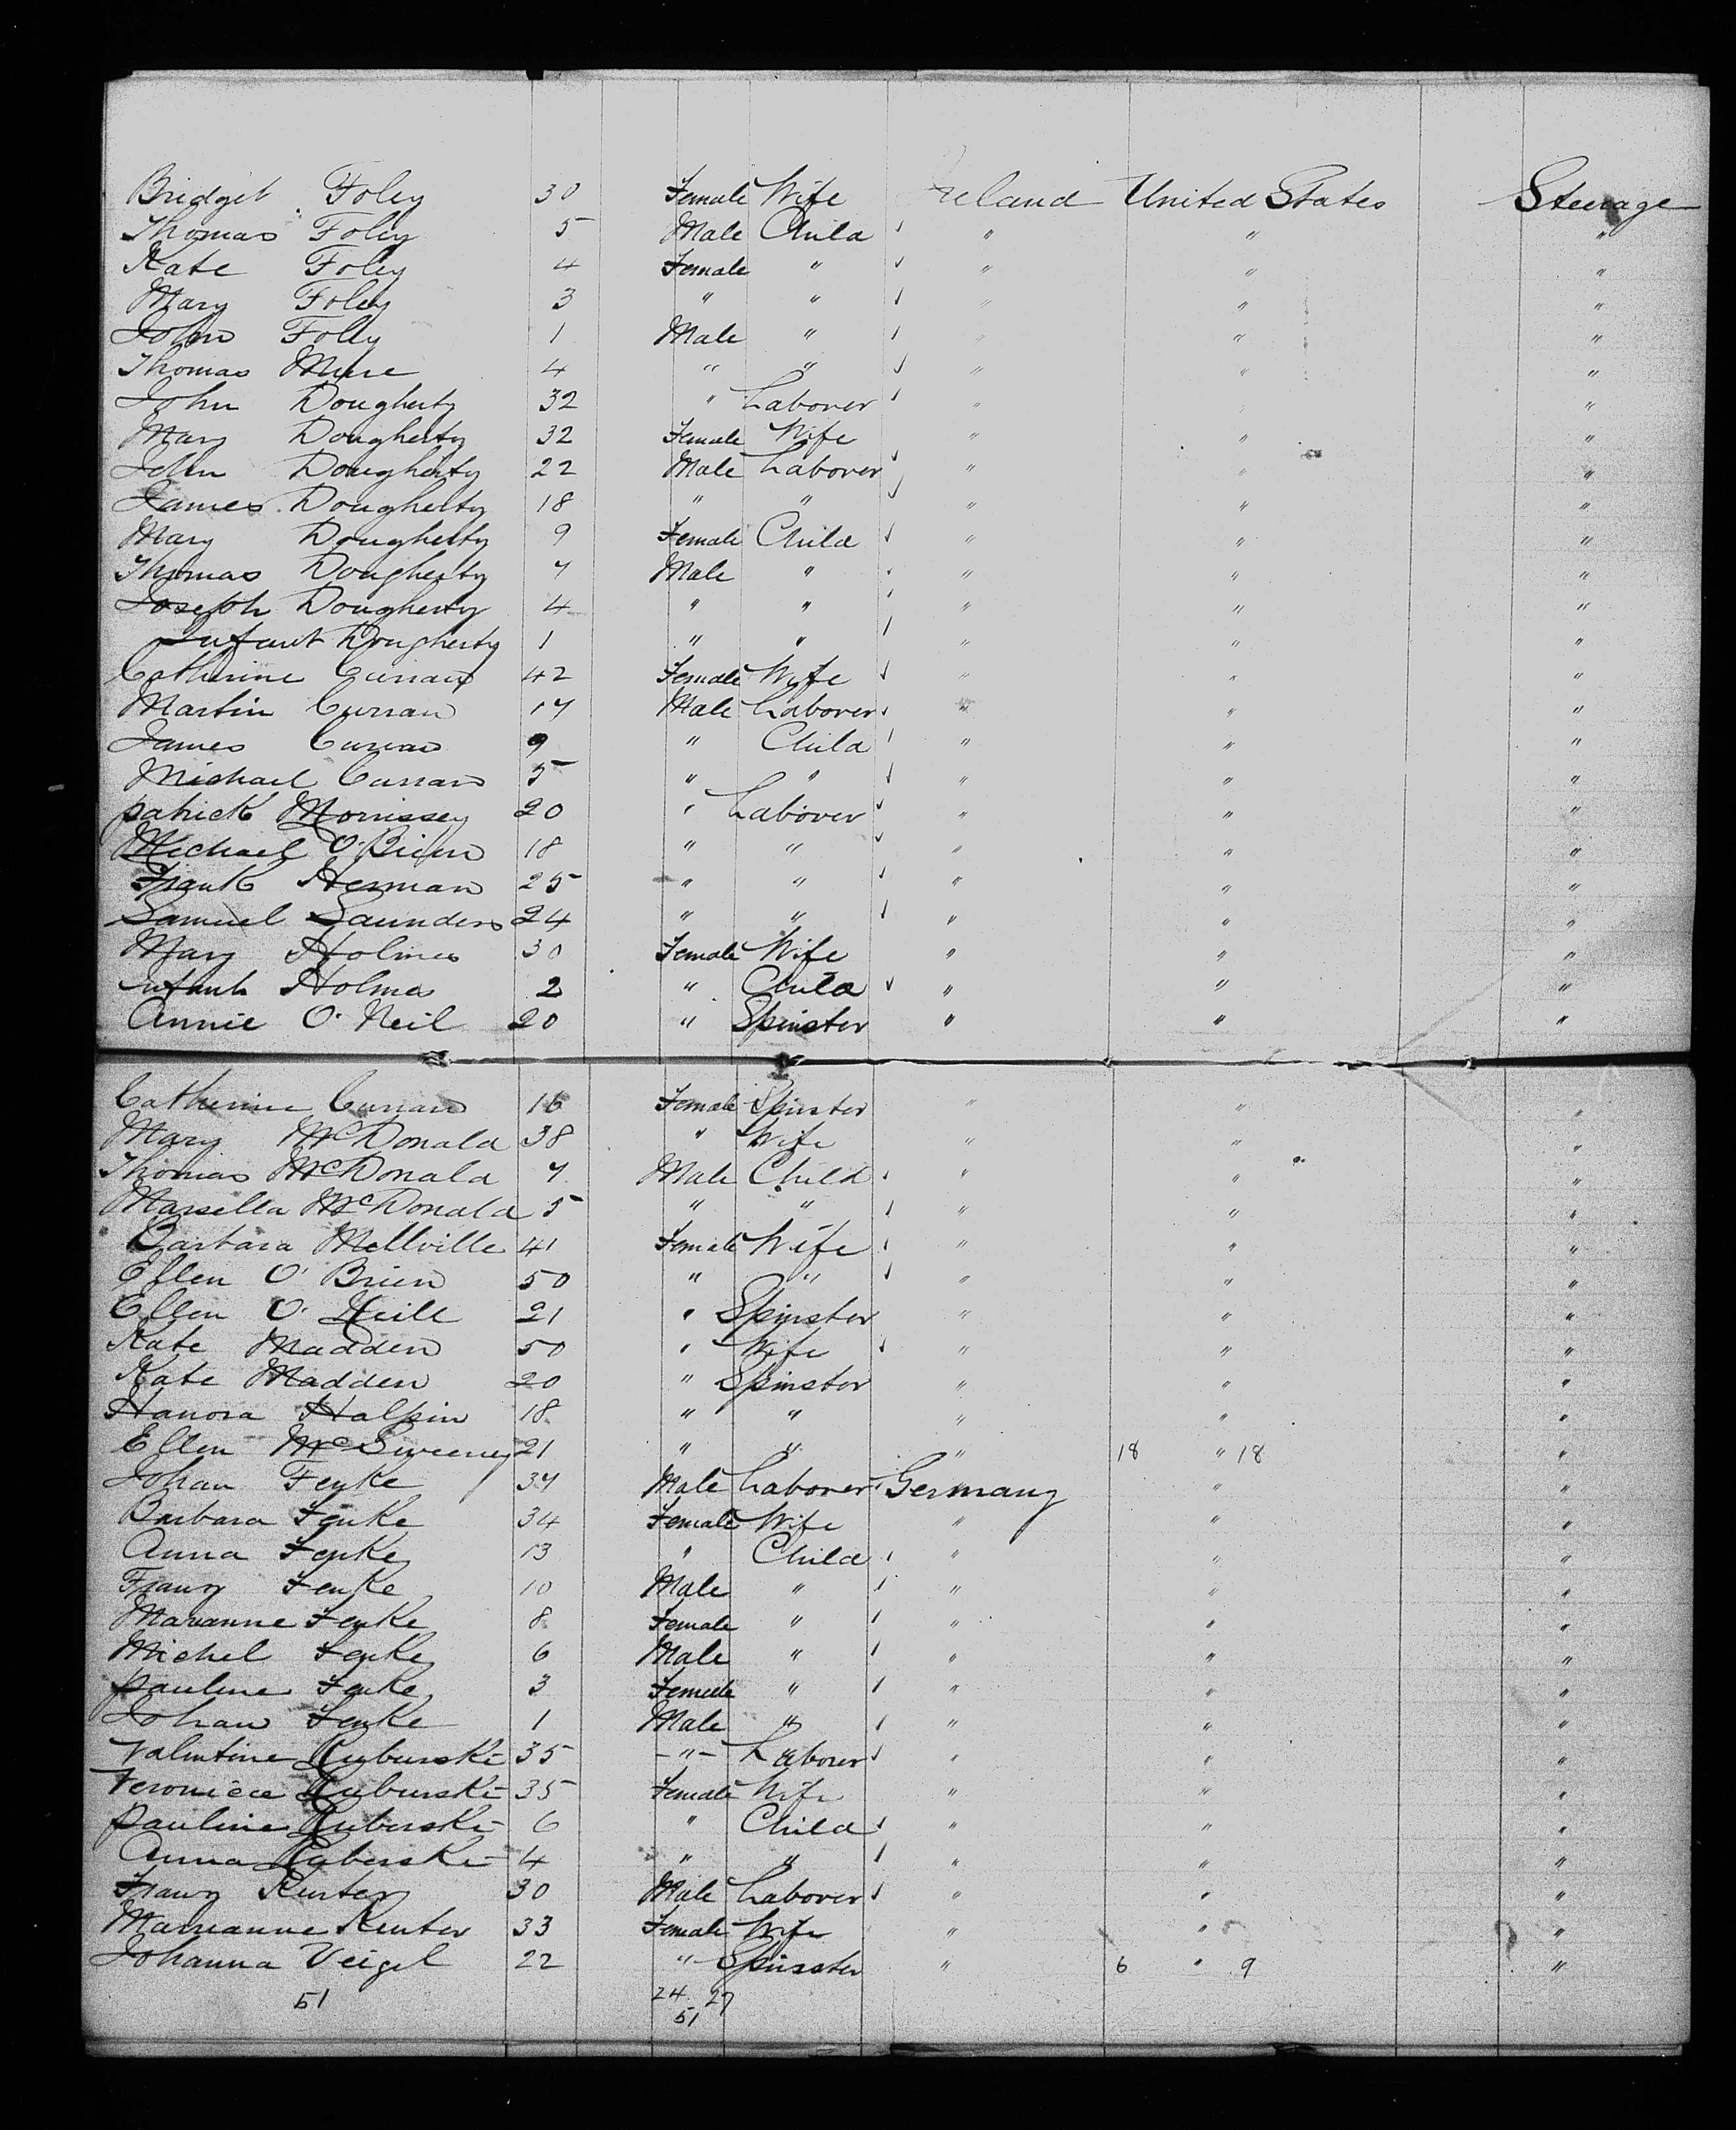 Bridget Foley 30 Female Wife Ireland United States Steerage
Thomas Foley 5 Male Child " " "
Kate Foley 4 Female " " " "
Mary Foley 3 " " " " "
John Foley 1 Male " " " "
Thomas 4 " " " " "
John Dougherty 32 " Laborer " " "
Mary Dougherty 32 Female Wife " " "
John Dougherty 22 Male Laborer " " "
James Dougherty 18 " " " " "
Mary Dougherty 9 Female Child " " "
Thomas Dougherty 7 Male " " " "
Joseph Dougherty 4 " " " " "
Infant Dougherty 1 " " " " "
Catherine Curran 42 Female Wife " " "
Martin Curran 17 Male Laborer " " "
James Curran 9 " Child " " "
Michael Curran 5 " " " " "
Patrick Morrissey 20 " Laborer " " "
Michael O'Brien 18 " " " " "
Frank Herman 25 " " " " "
Samuel Saunders 24 " " " " "
Mary Holmes 30 Female Wife " " "
Infant Holmes 2 " Child " " "
Annie O'Neil 20 " Spinster " " "
Catherine Curran 16 Female Spinster " " "
Mary McDonald 38 " Wife " " "
Thomas McDonald 7 Male Child " " "
Marsella McDonald 5 " " " " "
Barbara Mellville 41 Female Wife " " "
Ellen O'Brien 50 " " " " "
Ellen O'Neill 21 " Spinster " " "
Kate Madden 50 " Wife " " "
Kate Madden 20 " Spinster " " "
Hanora Halpin 18 " " " " "
Ellen McSweeney 21 " " " 18 " 18 "
Johan Fenke 37 Male Laborer Germany " "
Barbara Fenke 34 Female Wife " " "
Anna Fenke 13 " Child " " "
Franz Fenke 10 Male " " " "
Marianne Fenke 8 Female " " " "
Michel Fenke 6 Male " " " "
Pauline Fenke 3 Female " " " "
Johan Fenke 1 Male " " " "
Valentine 35 -"- Laborer " " "
Veronica 35 Female Wife " " "
Pauline 6 " Child " " "
Anna 4 " " " " "
Franz Reuter 30 Male Laborer " " "
Marianne Reuter 33 Female Wife " " "
Johanna Veigel 22 " Spinster " 6 " 9 "
51 24 27
51